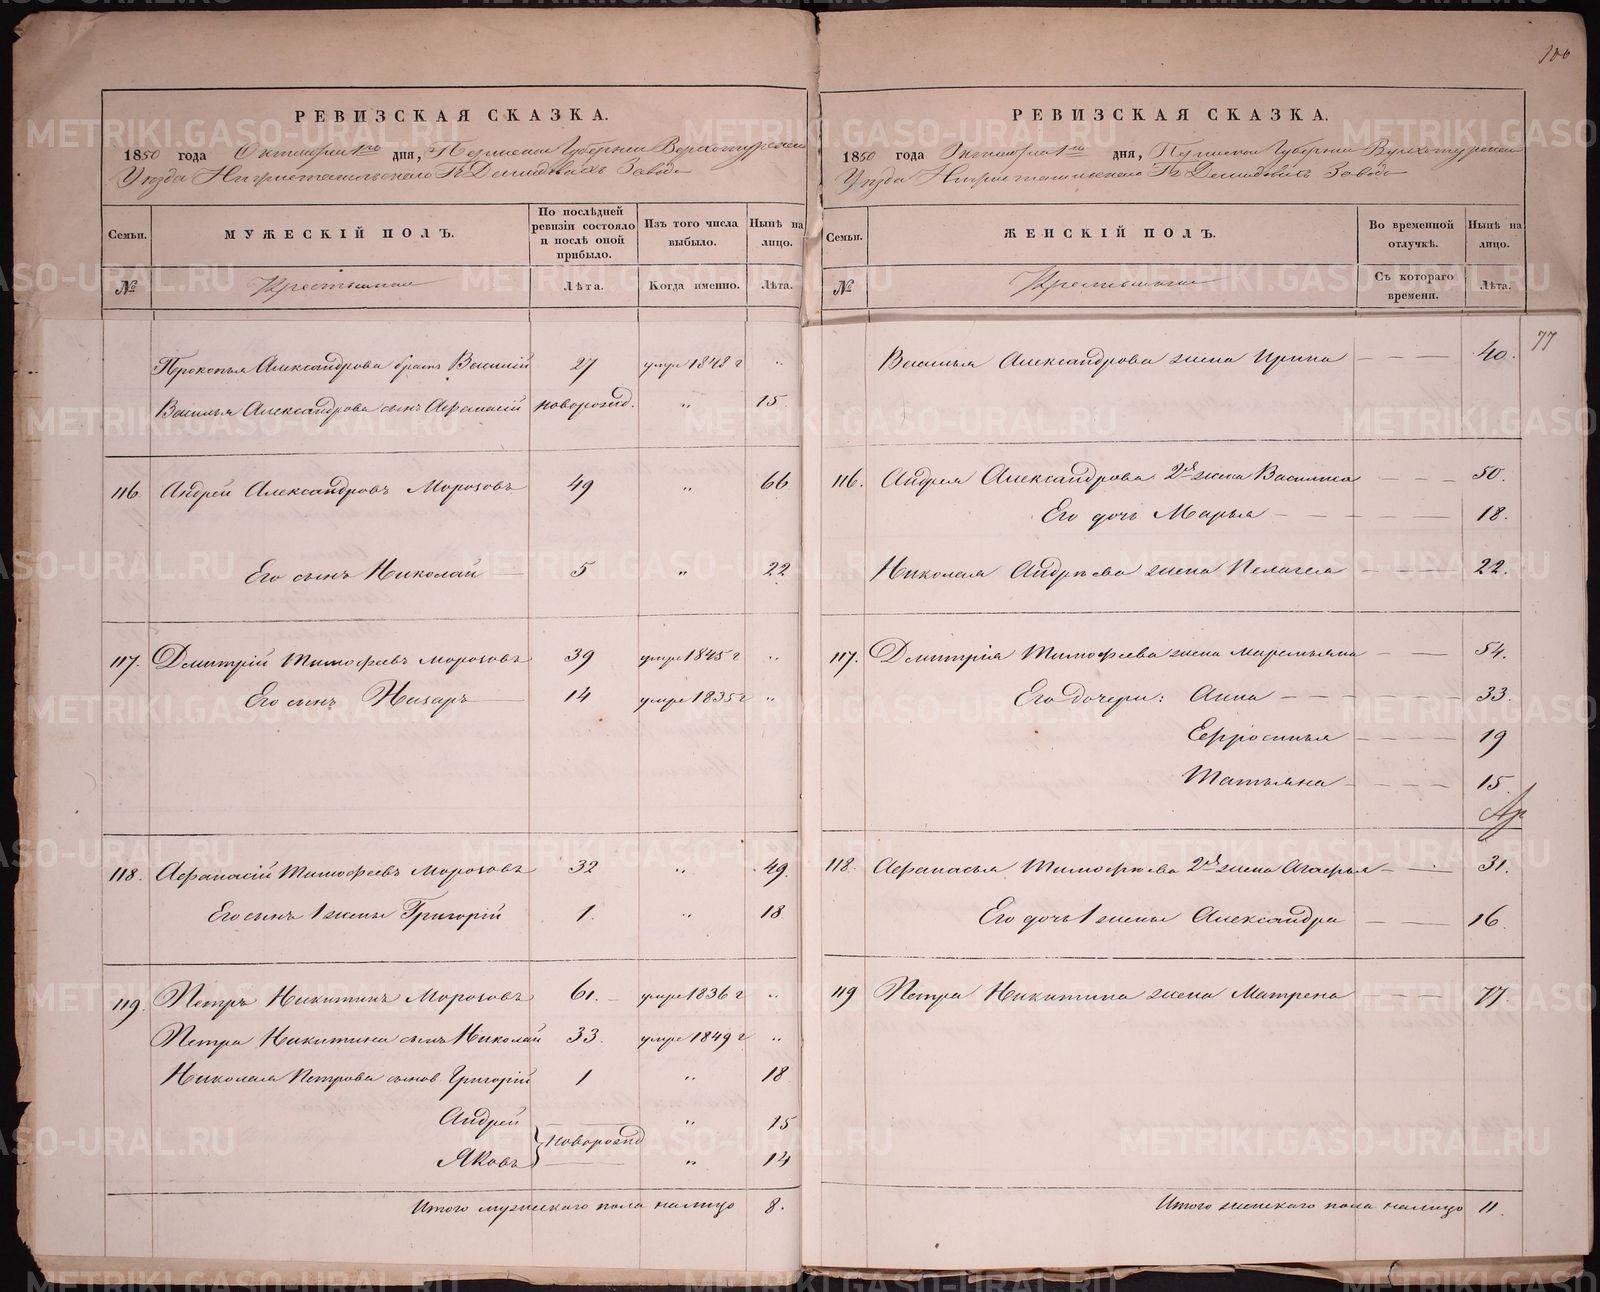 РЕВИЗСКАЯ СКАЗКА.
1850 года Октября дня, Пермской Губернии Верхотурскаго
Уезда Нижнетагильскаго Гг. Демидовыхъ Завода
Семьи. МУЖЕСКІЙ ПОЛЪ. По послѣдней ревизіи состояло и послѣ оной прибыло. Изъ того числа выбыло. Нынѣ на лицо.
№ Крестьяне Лѣта. Когда именно. Лѣта.
Прокопья Александрова братъ Василій 27 умре 1848 г "
Василья Александрова сынъ Афанасій новорожд. " 15
116. Андрей Александровъ Морозовъ 49 " 66
Его сынъ Николай 5 " 22
117. Дмитрій Тимофеевъ Морозовъ 39 умре 1845 г "
Его сынъ Назаръ 14 умре 1835 г "
118. Афанасій Тимофеевъ Морозовъ 32 " 49.
Его сынъ 1 жены Григорій 1. " 18
119. Петръ Никитинъ Морозовъ 61. умре 1836 г "
Петра Никитина сынъ Николай 33. умре 1849 г "
Николая Петрова сынов. Григорій 1 " 18
Андрей " 15
новорожд
Яковъ " 14
Итого мужескаго пола налицо 8.
100
РЕВИЗСКАЯ СКАЗКА.
1850 года Октября дня, Пермской Губернии Верхотурскаго
Уезда Нижнетагильскаго Гг. Демидовыхъ Завода
Семьи. ЖЕНСКІЙ ПОЛЪ. Во временной отлучкѣ. Нынѣ на лицо.
№ Крестьяне Съ котораго времени. Лѣта.
77
Василья Александрова жена Ирина 40.
116. Андрея Александрова 2я жена Василиса 50.
Его дочь Марья 18.
Николая Андрѣева жена Пелагея 22.
117. Дмитрія Тимофеева жена Маремьяна 54.
Его дочери: Анна 33.
Ефросинья 19
Татьяна 15
118. Афанасья Тимофѣева 2я жена Агафья 31.
Его дочь 1 жены Александра 16
119 Петра Никитина жена Матрена 77.
Итого женскаго пола налицо 11.
METRIKI.GASO-URAL.RU